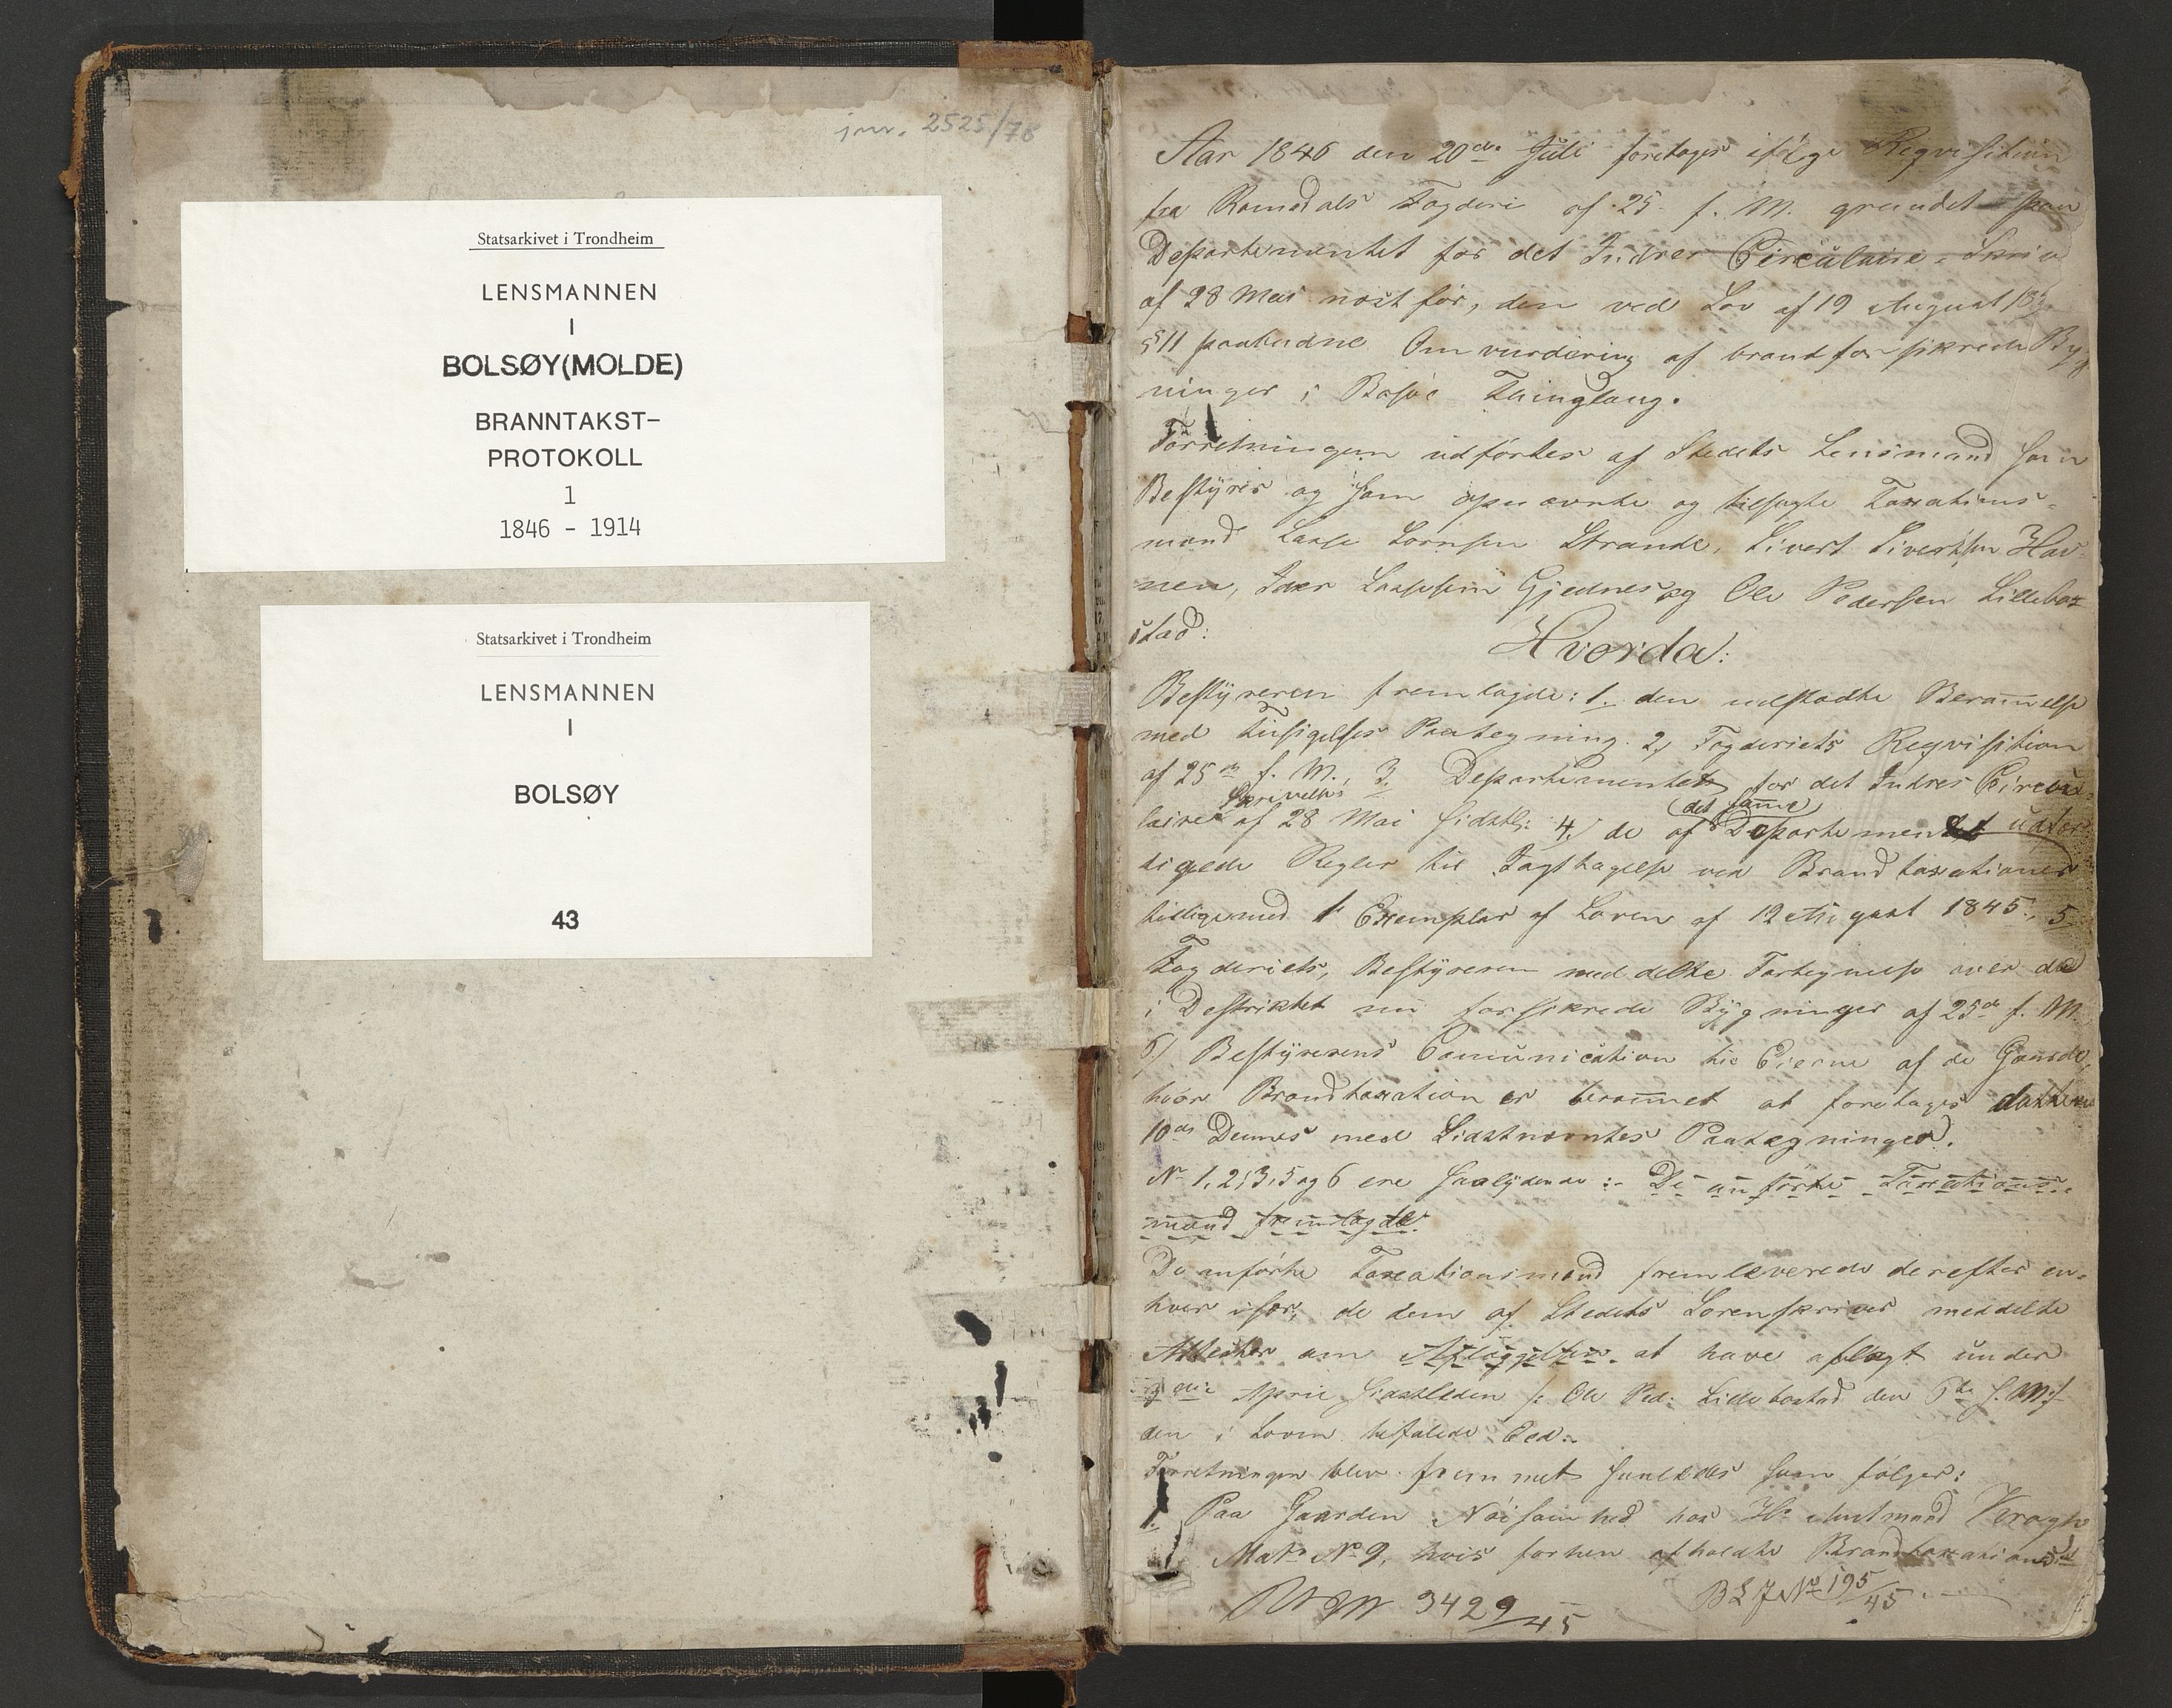 jnr. 2525/78
Statsarkivet i Trondheim
LENSMANNEN
I
BOLSØY(MOLDE)
BRANNTAKST-
PROTOKOLL
1
1846 - 1914
Statsarkivet i Trondheim
LENSMANNEN
I
BOLSØY
43
Aar 1846 den 20de Juli foretoges ifølge Reqvisition
fra Romsdals Fogderi af 25 f. M. grundet paa
Departementet for det Indres Circulaire-Skriv
af 28 Mai næst før, den ved Lov af 19 August 18
§ 11 paabudne Omvurdering af brandforsikrede Byg
ninger i Bolsøe Thinglaug.
Forretningen udførtes af Stedets Lensmand som
Bestyrer og som opnævnte og tilsagte Taxations-
mænd Lasse Strande, Sivert Sivertsen Hav
nen, Iver Lassesen Gjednes og Ole Pedersen Lillebor
stad:
Hvorda:
Bestyreren fremlagde: 1. den udstædte Beram̅else
med Tilsigelses Paategning. 2, Fogderiets Reqvisition
af 25de f. M., 3. Departementets for det Indres Circu
laire Skrivelse af 28 Mai sidstl: 4, de af det sam̅e Departement udfær
digede Regler til Iagttagelse ved Brandtaxationer
tilligemed 1 Exemplar af Loven af 19 August 1845, 5
Fogderiets, Bestyreren meddelte Fortegnelse over de
i Destriktet nu forsikrede Bygninger af 25de f. M.
6) Bestyrerens Com̅unication til Eierne af de Gaarde,
hvor Brandtaxation er beram̅et at foretages
10de Dennes med Sidstnævntes Paategninger.
No 1, 2, 3, 5 og 6 ere saalydende :- De anførte Taxations-
mænd fremlagde
De anførte Taxationsmænd fremleverede derefter en-
hver især, de dem af Stedets Sorenskriver meddelte
Attester om at have aflagt under
April sidstleden /: Ole Ped: Lilleborstad den 6te f. M:/
den i Loven befalede Eed.
Forretningen blev frem̅et saaledes som følger:
1. Paa Gaarden Nøisomhed hos Hr Amtmand
Matr No 9, hvis forhen afholdte Brandtaxations
3429/45
B L J No 195/45